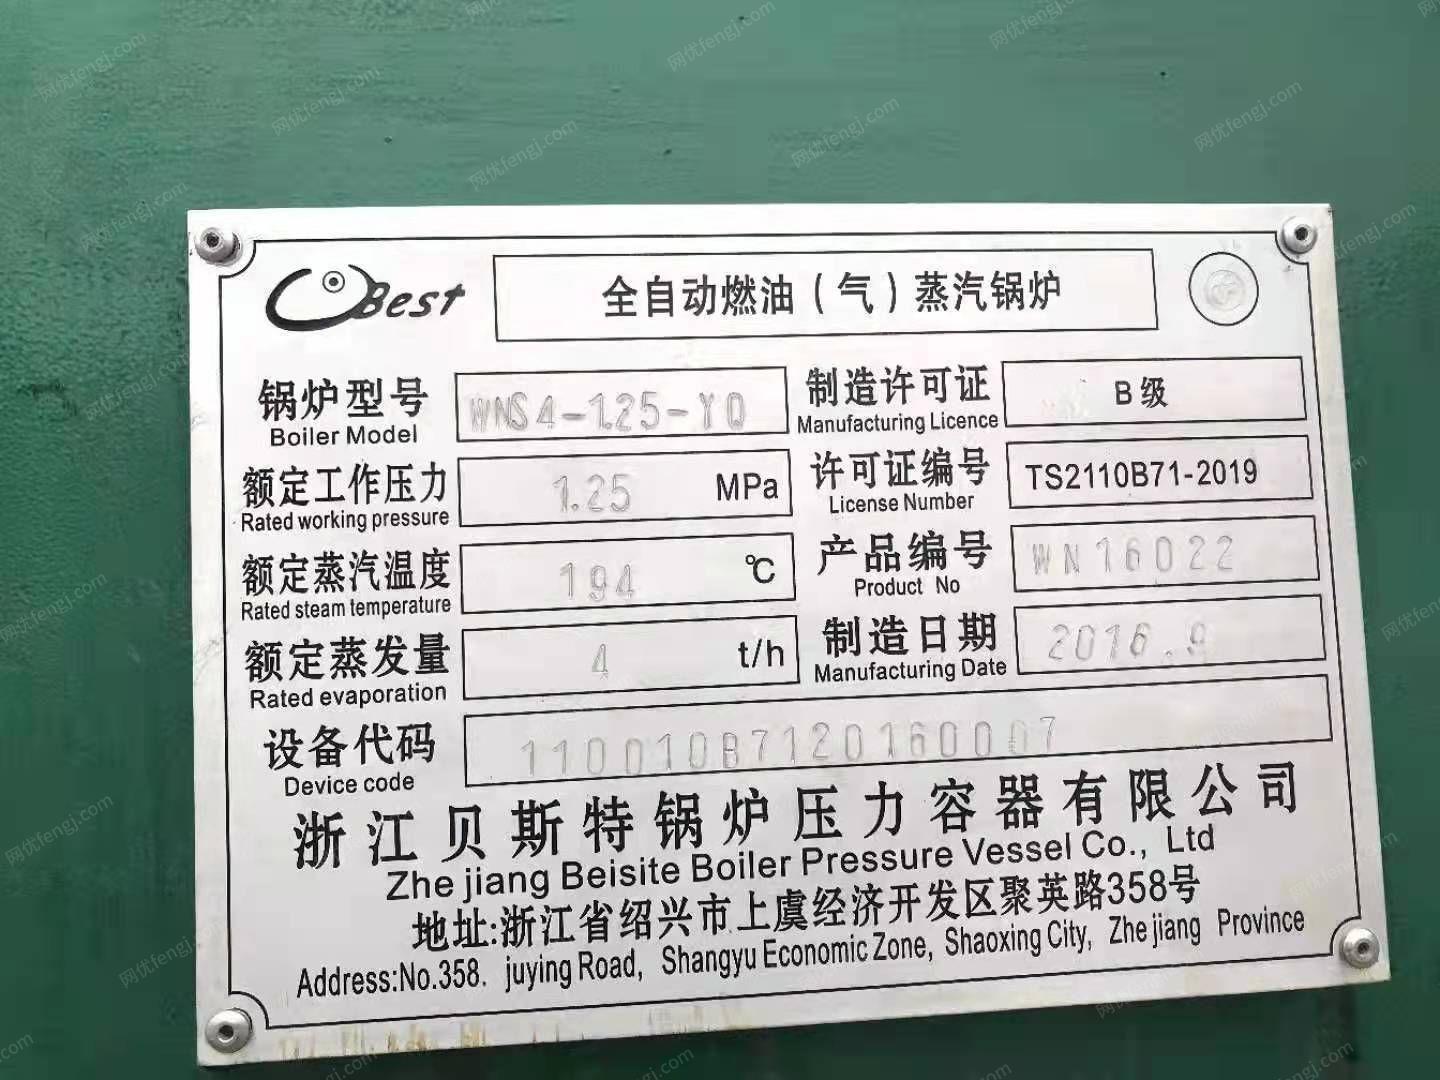 Best
全自动燃油(气)蒸汽锅炉
锅炉型号 WNS4-1.25-YQ 制造许可证 B级
Boiler Model Manufacturing Licence
额定工作压力 1.25 MPa 许可证编号 TS2110B71-2019
Rated working pressure License Number
额定蒸汽温度 194 ℃ 产品编号 WN16022
Rated steam temperature Product No
额定蒸发量 4 t/h 制造日期 2016.9
Rated evaporation Manufacturing Date
设备代码 110010B7120160007
Device code
浙江贝斯特锅炉压力容器有限公司
Zhe jiang Beisite Boiler Pressure Vessel Co., Ltd
地址:浙江省绍兴市上虞经济开发区聚英路358号
Address:No.358. juying Road, Shangyu Economic Zone, Shaoxing City, Zhe jiang Province
网优fengj.com